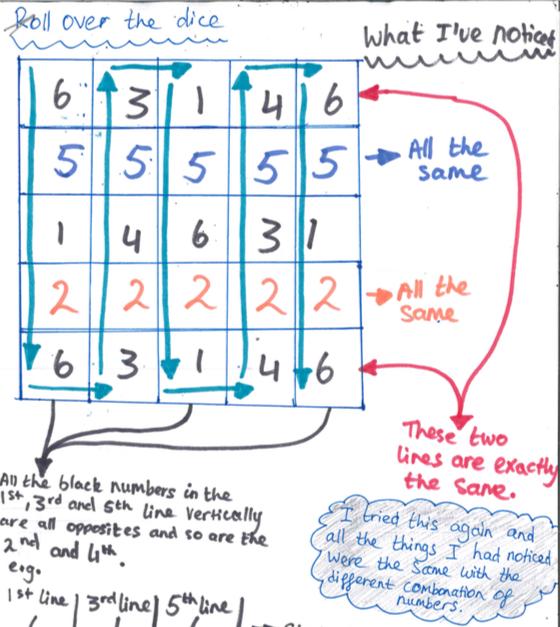 Roll over the dice
What I've noticed
6 3 1 4 6
5 5 5 5 5
All the
same
1 4 6 3 1
2 2 2 2 2
All the
same
6 3 1 4 6
These two
lines are exactly
the same.
All the black numbers in the
1st, 3rd and 5th line vertically
are all opposites and so are the
2nd and 4th.
e.g.
1st line | 3rd line | 5th line |
I tried this again and
all the things I had noticed
were the same with the
different combonation of
numbers.